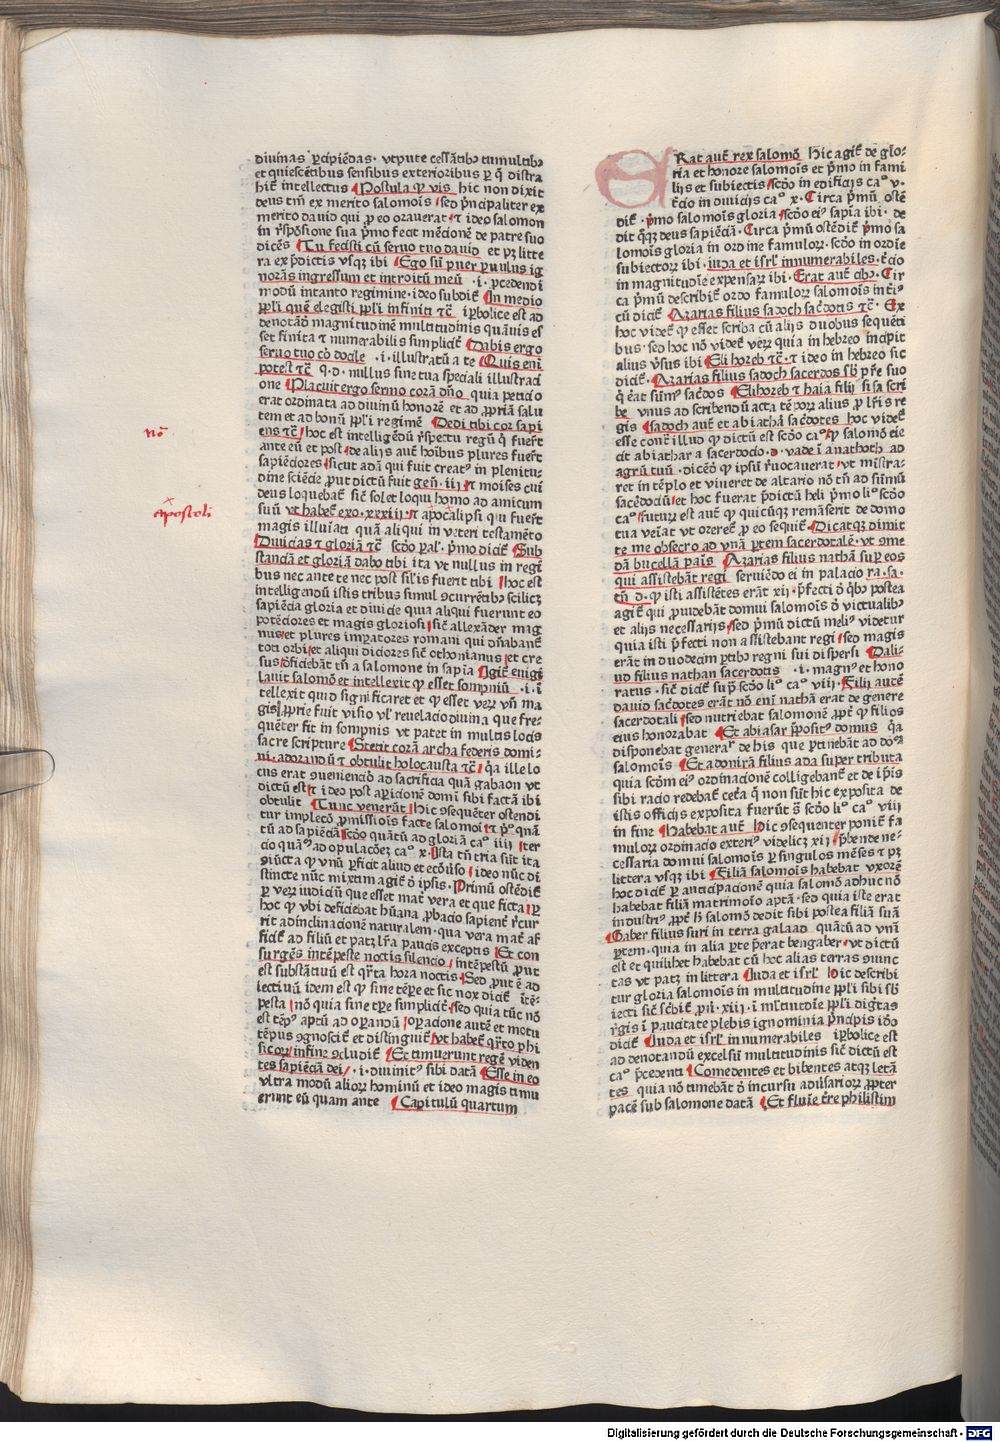 diuinas ꝑcipiẽdas · vtpute cessãtibꝰ tumultibꝰ
et quiescẽtibus sensibus exterioribus ꝑ q̃ distra
hit̃ intellectus Postula qͥ vis hic non dixit
deus tm̃ ex merito salomois sed p̃ncipaliter ex
merito dauid qui ꝓ eo orauerat · ⁊ ideo salomon
in r̃sp̃õsione sua pͥmo fecit mẽcionẽ de patre suo
dicẽs Tu fecisti cũ seruo tuo dauid et pꝫ litte
ra ex p̃dictis vsqꝫ ibi Ego sũ puer ꝑuulus ig
norãs ingressum et introitũ meũ · i · ꝓcedendi
modũ in tanto regimine · ideo subdit̃ In medio
ppl̃i quẽ elegisti ppl̃i infiniti ⁊c̃ iꝑbolice est ad
denotãdõ magnitudinẽ multitudinis quãuis es
set finita ⁊ numerabilis simplicit̃ Dabis ergo
seruo tuo cõ docile · i · illustratũ a te Quis eni
potest ⁊c̃ q · d · nullus sine tua speciali illustraci
one Placuit ergo sermo corã dño quia peticio
erat ordinata ad diuinũ honorẽ et ad ꝓpriã salu
tem et ad bonũ ppl̃i regimẽ Dedi tibi cor sapi
ens ⁊c̃ hoc est intelligẽdũ r̃spectu regũ q̃ fuer̃t
ante eũ et post de alijs aut̃ hoibus plures fuer̃t
sapiẽciores sicut adã qui fuit creatꝰ in plenitu-
dine sciẽcie ꝓut dictũ fuit geñ · iij ⁊ moises cui
deus loquebat̃ sic̃ solet loqui homo ad amicum
suũ vt habet̃ exo · xxxiij · ⁊ apocalipsi qui fuer̃t
magis illuĩati quã aliqui in veteri testamẽto
Diuicias ⁊ gloriã ⁊c̃ scďo ꝑal̃ · pͥmo dicit̃ Sub
stanciã et gloriã dabo tibi ita vt nullus in regi
bus nec ante te nec post sil̃is fuerit tibi hoc est
intelligendũ istis tribus simul ɔcurrẽtibꝰ scilicꝫ
sapiẽcia gloria et diuicie qua aliqui fuerunt eo
potẽciores et magis gloriosi sic̃ allexãder mag
nus et plures imꝑatores romani qui dñabant̃
toti orbi et aliqui diciores sic̃ othonianus et cre
sus õficiebãt tñ a salomone in sapĩa Igit̃ euigi
lauit salomõ et intellexit qͥ esset sompniũ · i · ĩ
tellexit quid significaret et qͥ esset veꝝ vñ ma
gis ꝓprie fuit visio vl̃ reuelacio diuina que fre-
quẽter fit in sompnis vt patet in multis locis
sacre scripture Stetit corã archa federis domi-
ni · adorandũ ⁊ obtulit holocausta ⁊c̃ q̃a ille lo
cus erat ɔueniencior ad sacrificia quã gabaon vt
dictũ est ⁊ ideo post aꝑicionẽ domĩ sibi factã ibi
obtulit Tunc venerũt hic ɔsequẽter ostendi
tur implecõ ꝓmissiois facte salomoi ⁊ pͥ° quã
tũ ad sapiẽciã scďo quãtũ ad gloriã ca° iiij ter
cio quãtũ ad opulacõeꝫ ca° x · Ista tñ tria sũt ita
ɔiũcta qͥ vnũ ꝑficit aliud et ecõuerso ideo nũc di
stincte nũc mixtim agit̃ ð ipsis · Primũ ostẽdit̃
ꝑ veꝝ iudiciũ que esset mat̃ vera et que ficta ꝑ
hoc qͥ vbi deficiebat hũana ꝓbacio sapient̃ r̃cur
rit ad inclinacionẽ naturalem · qua vera mat̃ af
ficit̃ ad filiũ et patꝫ lr̃a paucis exceptis Et con
surgẽs intẽpeste noctis silencio intẽpestũ ꝓut
est substãtiuũ est q̃rta hora noctis Sed ꝓut ẽ ad
iectiuũ idem est qͥ sine tẽpe et sic nox dicit̃ ĩtẽ-
pesta nõ quia sine tꝑe simplicit̃ sed quia tũc nõ
est tẽpꝰ aptũ ad oꝑandũ oꝑacione autẽ et motu
tẽpus ɔgnoscit̃ et distinguit̃ vt habet̃ qͥrto phi
sicoꝝ infine ɔcludit̃ Et timuerunt regẽ viden
tes sapiẽciã dei · i · diuinitꝰ sibi datã Esse in eo
vltra modũ alioꝝ hominũ et ideo magis timu
erunt eũ quam ante Capitulũ quartum
ERat aut̃ rex salomõ Hic agit̃ de glo-
ria et honore salomõis et pͥmo in fami
lijs et subiectis scďo in edificijs ca° v ·
t̃cio in diuicijs ca° x · Circa pͥmũ ostẽ
dit̃ · pͥmo salomõis gloria scďo eiꝰ sapĩa ibi · de
dit q̃qꝫ deus sapiẽciã · Circa pͥmũ ostẽdit̃ pͥmo sa
lomõis gloria in ordine famuloꝝ · scďo in ordĩe
subiectoꝝ ibi · iuda et isrl̃ innumerabiles · t̃cio
in magnitudĩe expensaꝝ ibi · Erat aut̃ cibꝰ · Cir
ca pͥmũ describit̃ ordo famuloꝝ salomõis int̃iꝰ
cũ dicit̃ Azarias filius sadoch sac̃dotis ⁊c̃ · Ex
hoc videt̃ qͥ esset scriba cũ alijs duobus sequẽti
bus · sed hoc nõ videt̃ veꝝ quia in hebreo incipit
alius v̾sus ibi Eli horeb ⁊c̃ · ⁊ ideo in hebreo sic
dicit̃ · Azarias filius sadoch sacerdos sb̃ pr̃e suo
q̃ erat sũmꝰ sac̃dos Elihoreb ⁊ haia filij sisa scri
be vnus ad scribendũ acta tẽpoꝝ alius ꝓ lr̃is re
gis sadoch aut̃ et abiathã sac̃dotes hoc videt̃
esse cont̃ illud qͥ dictũ est scďo ca° qͥ salomõ eie
cit abiathar a sacerdocio · d · vade ĩ anathoth ad
agrũ tuũ · dicẽõ qͥ ipsũ r̃uocauerat vt mĩstra-
ret in tẽplo et viueret de altario nõ tñ ad sũmũ
sac̃edociũ et hoc fuerat p̃dictũ heli pͥmo li° scďo
ca° futuꝝ est aut̃ qͥ quicũqꝫ remãserit de domo
tua veĩat vt oreret̃ ꝓ eo sequit̃ · Dicatqꝫ dimit
te me obsecro ad vnã ꝑtem sacerdotalẽ · vt ɔme
dã bucellã pais̃ Azarias filius nathã sup eos
qui assistebãt regi seruiẽdo ei in palacio ra · sa ·
tñ d · qͥ isti assistẽtes erãt xij · p̃fecti ð qͥbꝰ postea
agit̃ qui ꝓuidebãt domui salomõis ð victualibꝰ
et alijs necessarijs sed pͥmũ dictũ meliꝰ videtur
quia isti p̃fecti non assistebant regi sed magis
erãt in duodecim ꝑtibꝰ regni sui dispersi Dali-
ud filius nathan sacerdotis · i · magnꝰ et hono
ratus · sic̃ dicit̃ sup̃ scďo li° ca° viij · Filij autẽ
dauid sac̃dotes erãt nõ eni nathã erat de genere
sacerdotali sed nutriebat salomonẽ ꝓpt̃ qͥ filios
eius honorabat Et abiasar p̃positꝰ domus q̃a
disponebat generaꝉ de his que ꝑtinebãt ad do°ꝫ
salomõis Et adonirã filius ada super tributa
quia scďm eiꝰ ordinacionẽ colligebant̃ et de ip̃is
sibi racio redebat̃ cet̃a q̃ non sũt hic exposita de
istis officijs exposita fuerũt s̃ scďo li° ca° viij
in fine Habebat aut̃ hic ɔsequenter ponit̃ fa
muloꝝ ordinacio exteriꝰ videlicꝫ xij p̃bende ne-
cessaria domui salomõis ꝑ singulos mẽses ⁊ pꝫ
littera vsqꝫ ibi Filiã salomõis habebat vxorẽ
hoc dicit̃ ꝑ anticipacionẽ quia salomõ adhuc nõ
habebat filiã matrimoĩo aptã · sed quia iste erat
industriꝰ ꝓpt̃ h̃ salomõ dedit sibi postea filiã suã
Gaber filius suri in terra galaad quãtũ ad vnĩ
ꝑtem · quia in alia ꝑte p̃erat bengaber vt dictũ
est et quilibet habebat cũ hoc alias terras ɔiunc
tas vt patꝫ in littera Iuda et isrl̃ hic describi
tur gloria salomõis in multitudine ppl̃i sibi sb̃
iecti sic̃ sc̃bit̃ ꝓu̾ · xiij · ĩ ml̃titudĩe ppl̃i digĩtas
r̃gis ĩ paucitate plebis ignominia p̃ncipis iďo
dicit̃ Iuda et isrl̃ innumerabiles iꝑbolice est
ad denotandũ excelsũ multitudinis sic̃ dictũ est
ca° p̃cedenti Comedentes et bibentes atqꝫ letã
tes quia nõ timebãt ð incursu aduersarioꝝ ꝓpter
pacẽ sub salomone datã Et fluĩe t̃re philistim
nõ
apostoli
Digitalisierung gefördert durch die Deutsche Forschungsgemeinschaft - DFG